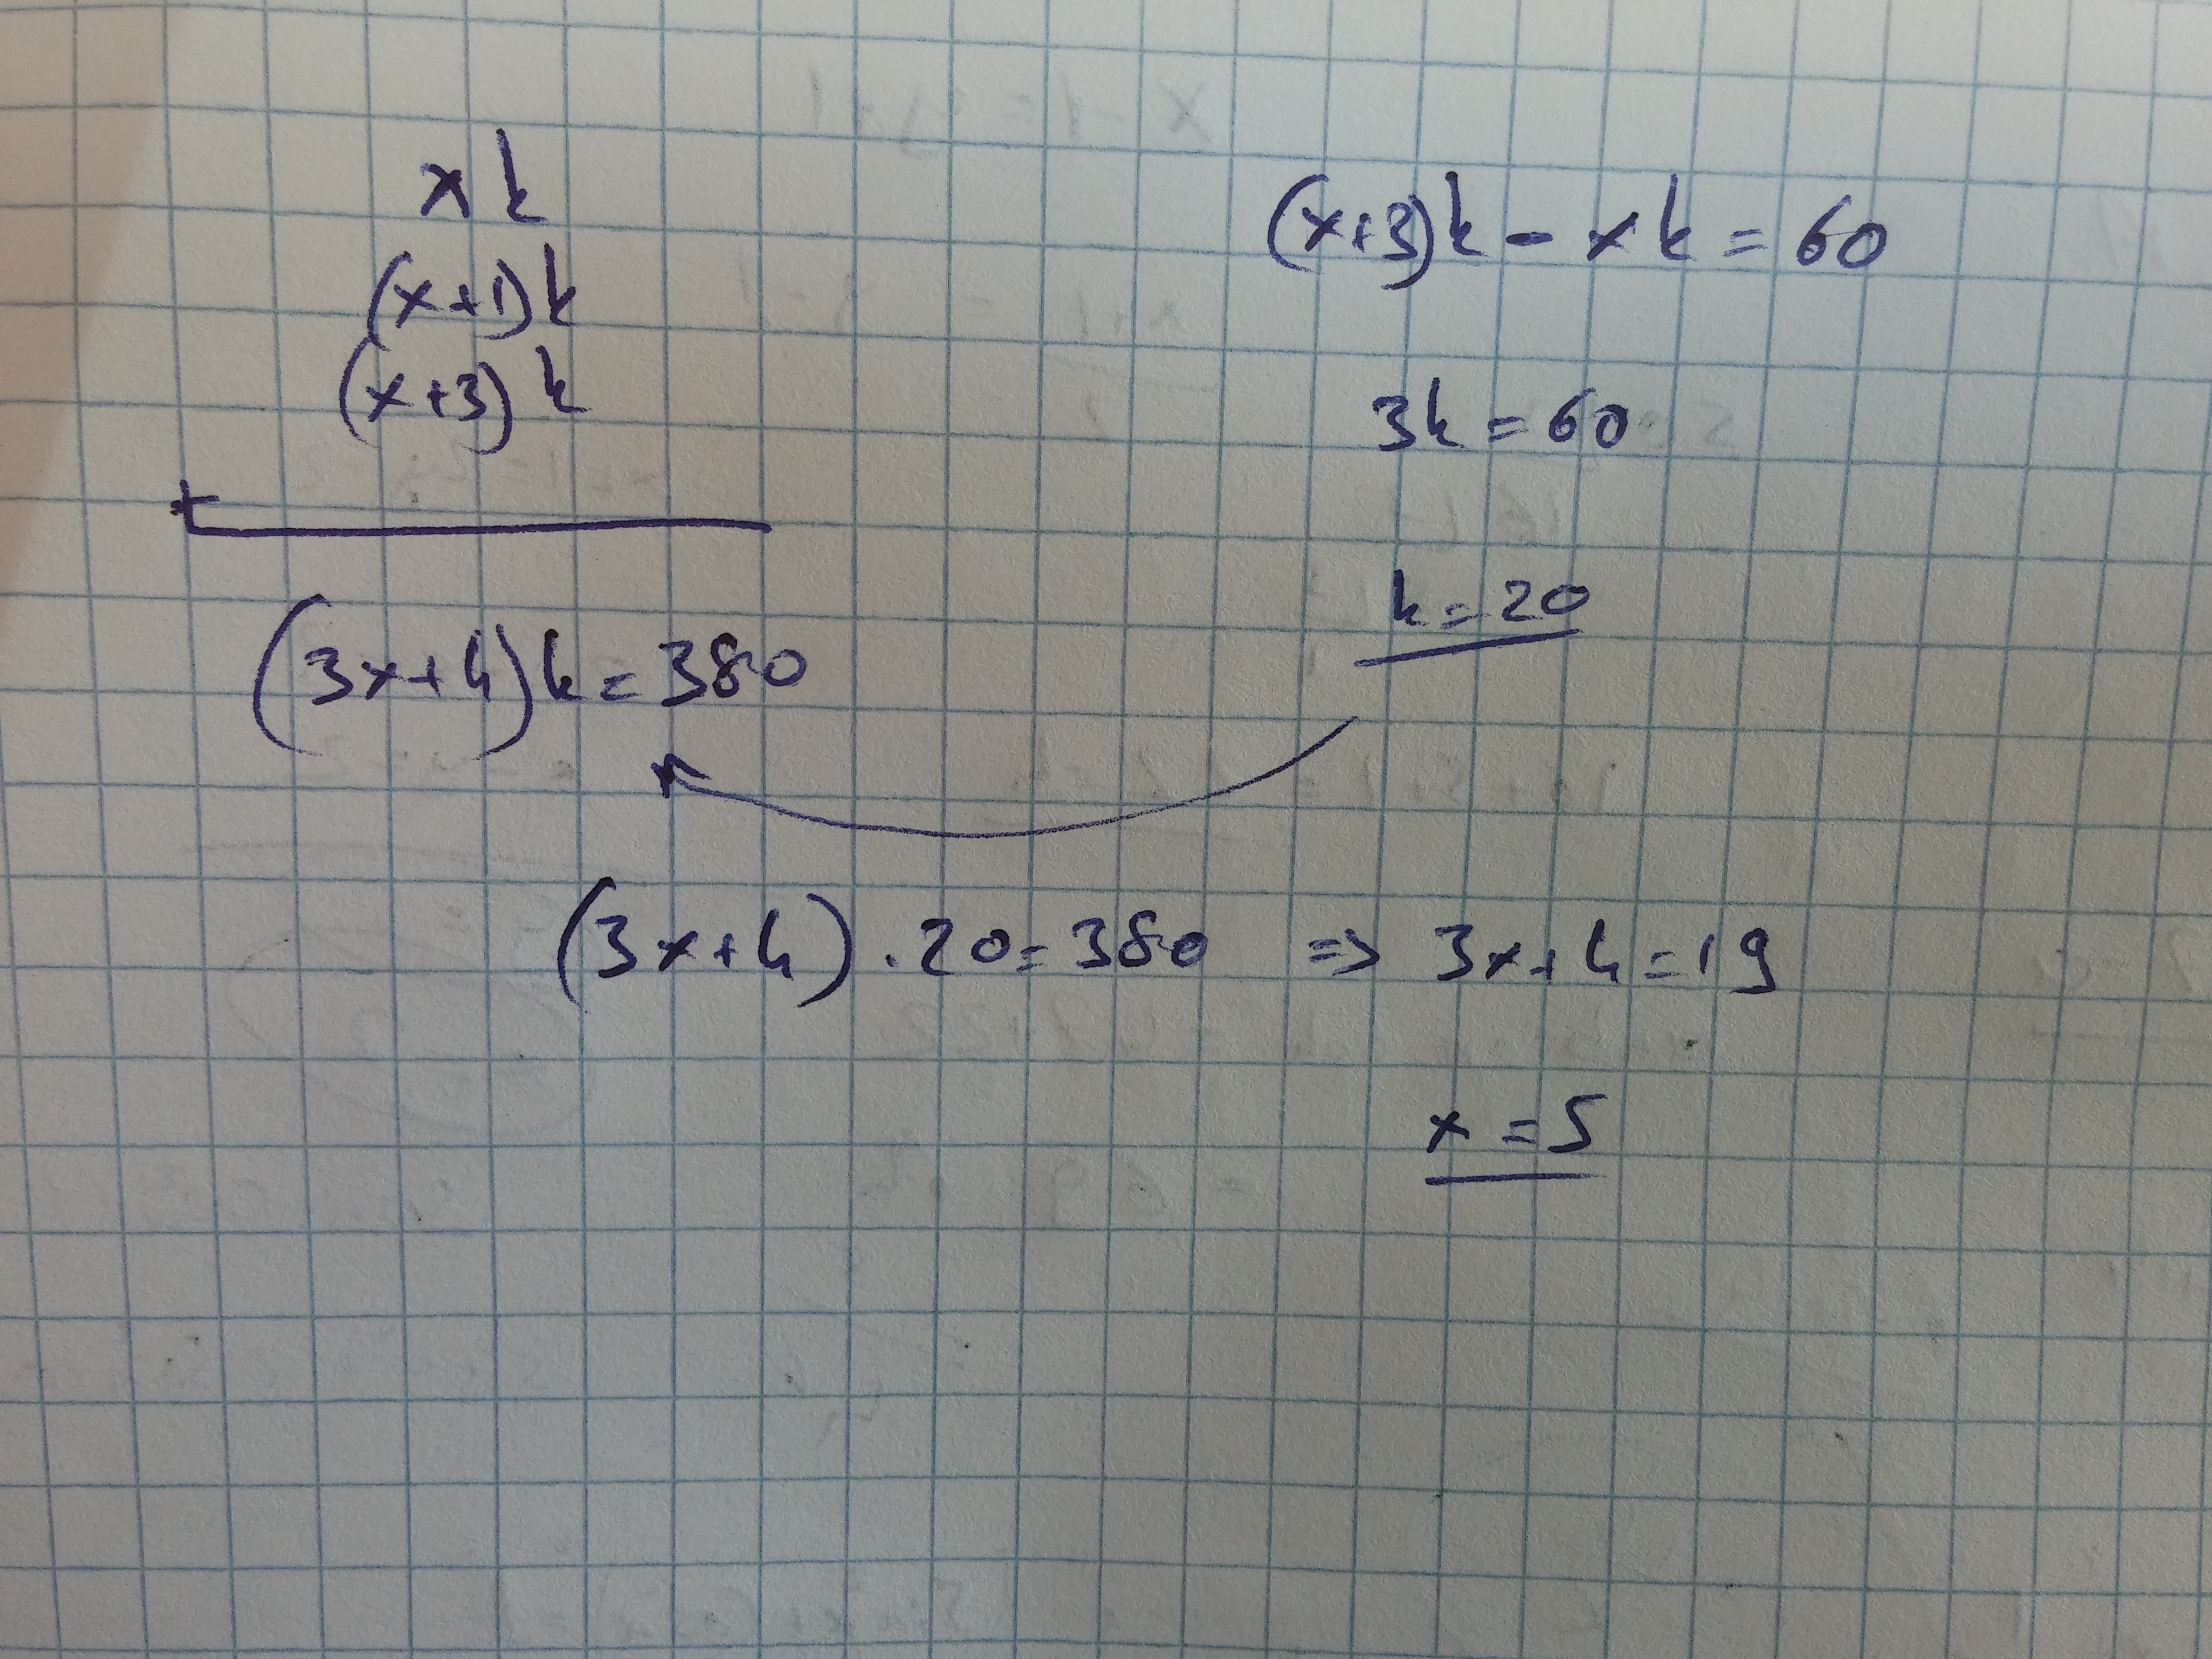 xk
(x+1)k
(x+3)k
+
(3x+4)k=380
(x+3)k-xk=60
3k=60
k=20
(3x+4).20=380 => 3x+4=19
x=5